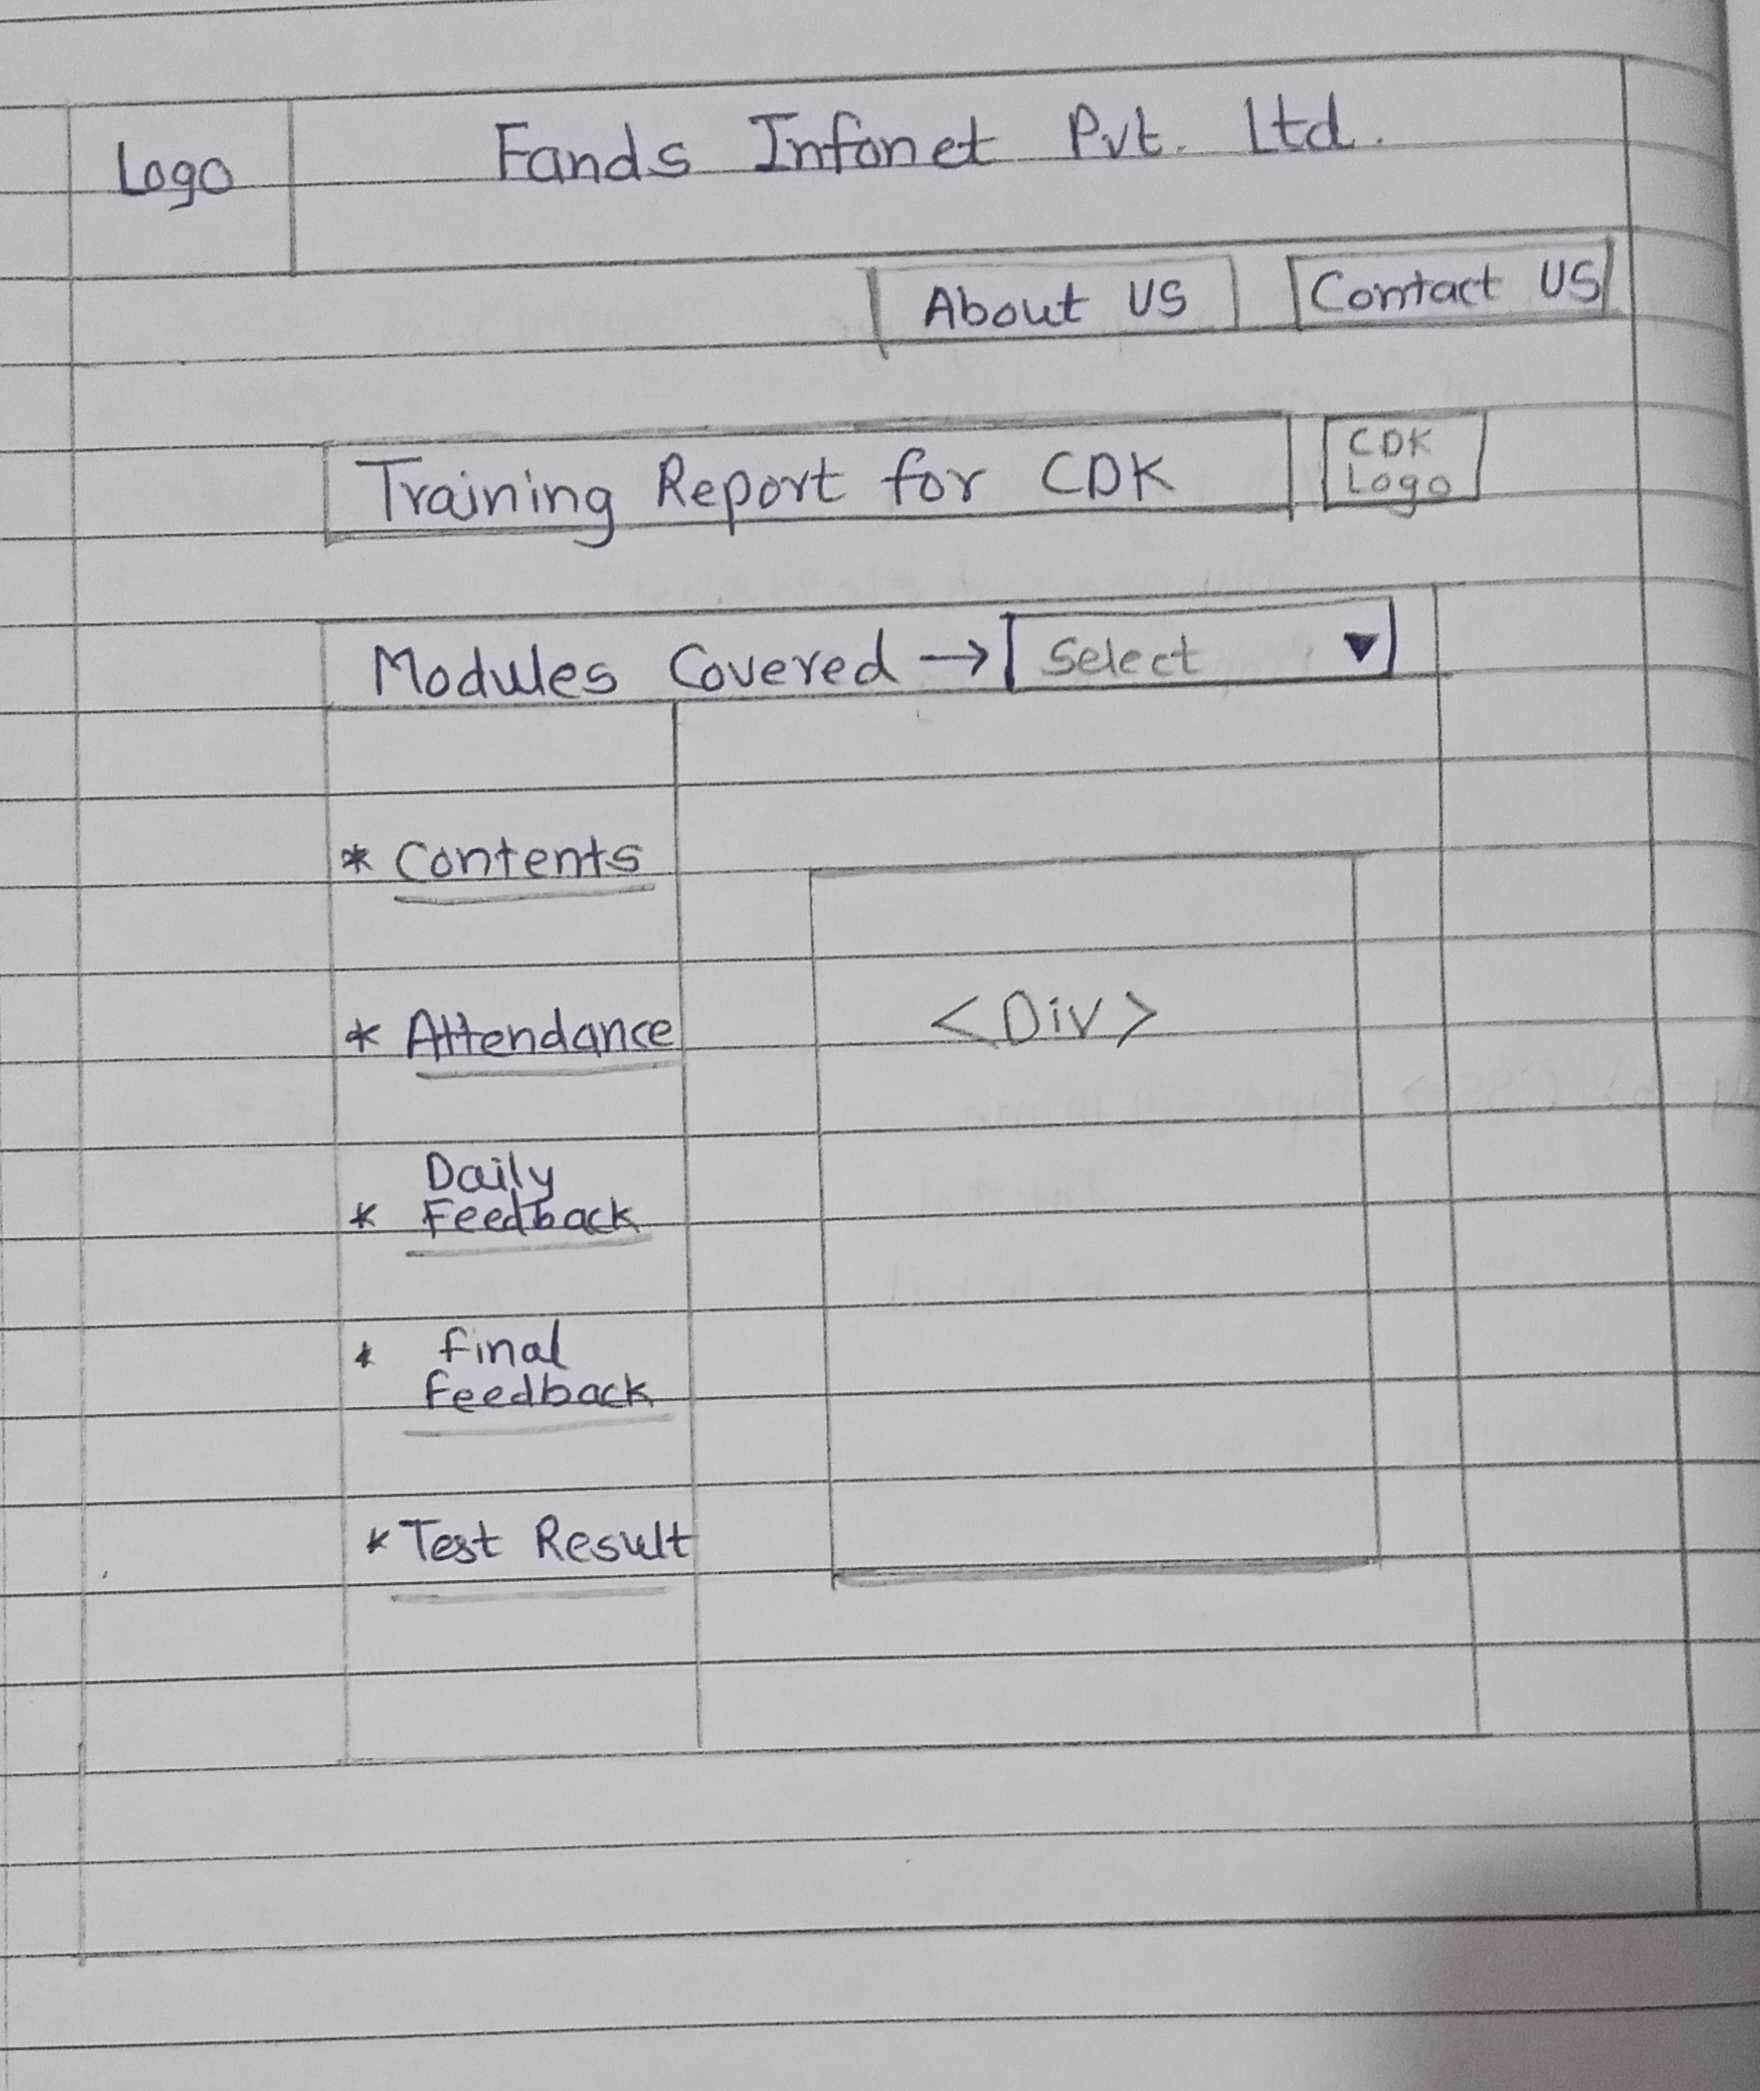 Logo
Fands Infonet Pvt. Ltd.
About US
Contact US
Training Report for CDK
CDK
Logo
Modules Covered → Select ▼
* Contents
* Attendance
<Div>
Daily
* Feedback
* Final
Feedback
* Test Result